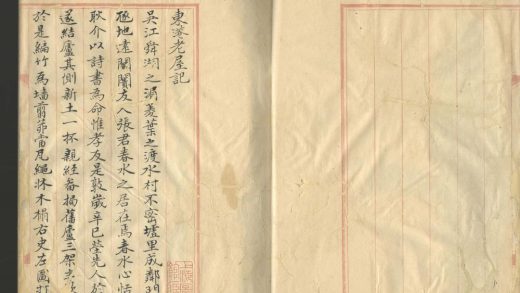 東湾老屋記
吳江舜湖之濱菱葉之渡水村不密墟里成鄰
極地遠闤闠友人張君春水之居在焉春水心恬
耿介以詩書為命惟孝友是敦歲辛巳塋先人於
遂結廬其側新土一抔親經畚挶舊廬三架
於是編竹為墻剪茆當瓦繩牀木榻右史左圖